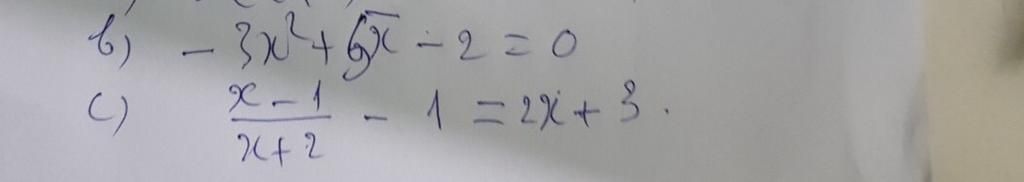 b) - 3x² + 5x - 2 = 0
c) \frac{x - 1}{x + 2} - 1 = 2x + 3.